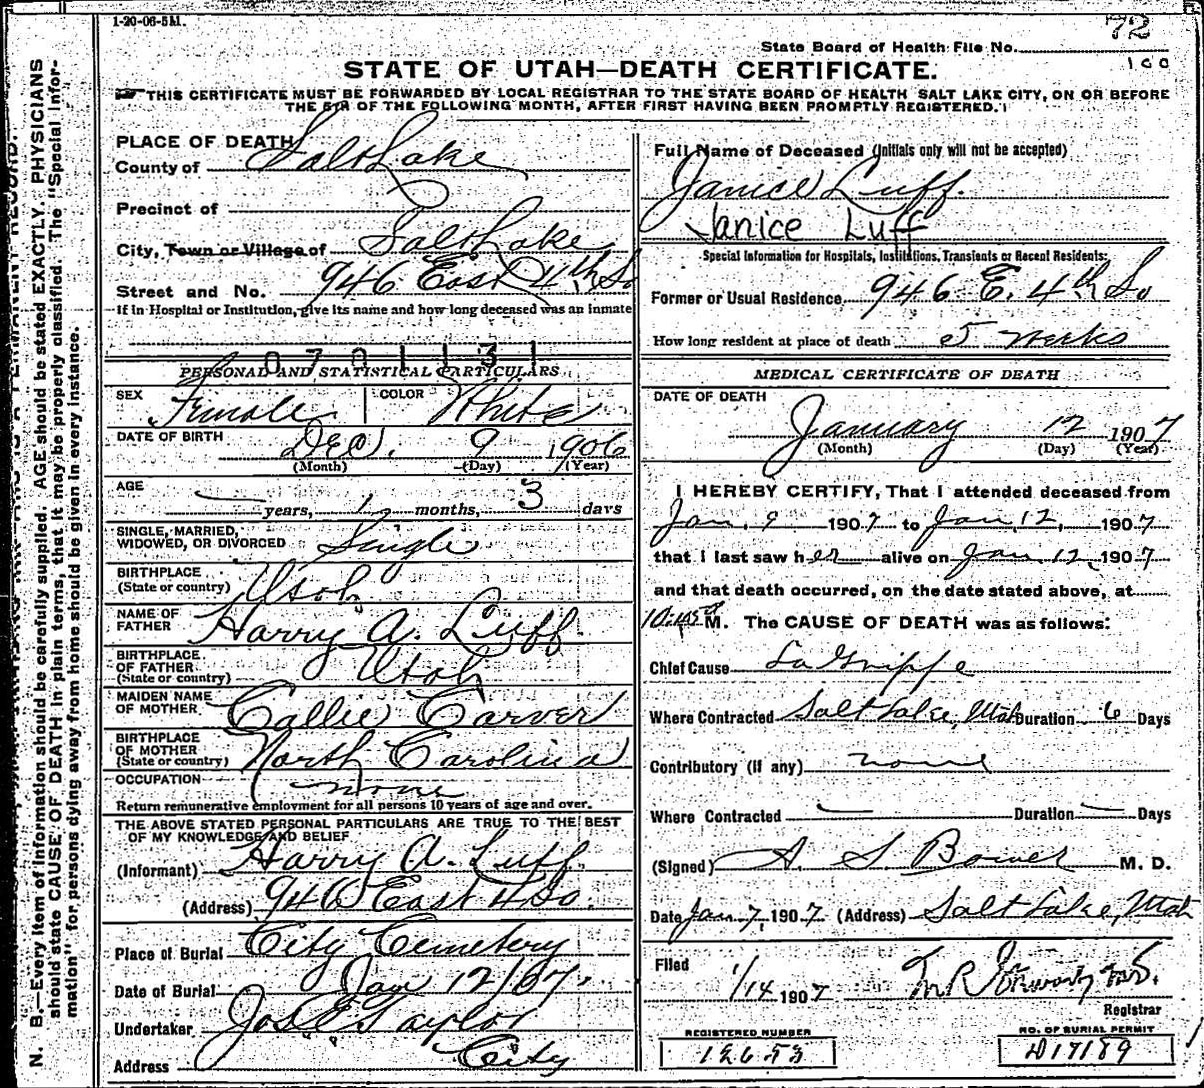 1-20-06-5M.
72
State Board of Health File No.
100
STATE OF UTAH—DEATH CERTIFICATE.
THIS CERTIFICATE MUST BE FORWARDED BY LOCAL REGISTRAR TO THE STATE BOARD OF HEALTH SALT LAKE CITY, ON OR BEFORE
THE 5TH OF THE FOLLOWING MONTH, AFTER FIRST HAVING BEEN PROMPTLY REGISTERED.
N. B.—Every item of information should be carefully supplied. AGE should be stated EXACTLY. PHYSICIANS
should state CAUSE OF DEATH in plain terms, that it may be properly classified. The "Special Infor-
mation" for persons dying away from home should be given in every instance.
PLACE OF DEATH
County of Salt Lake
Precinct of
City, Town or Village of Salt Lake
Street and No. 946 East 4th So
If in Hospital or Institution, give its name and how long deceased was an inmate
PERSONAL AND STATISTICAL PARTICULARS
SEX Female COLOR White
DATE OF BIRTH Dec. 9 1906
(Month) (Day) (Year)
AGE — years, 1 months, 3 days
SINGLE, MARRIED,
WIDOWED, OR DIVORCED Single
BIRTHPLACE
(State or country) Utah
NAME OF
FATHER Harry A. Luff.
BIRTHPLACE
OF FATHER
(State or country) Utah
MAIDEN NAME
OF MOTHER Callie Carver
BIRTHPLACE
OF MOTHER
(State or country) North Carolina
OCCUPATION none
Return remunerative employment for all persons 10 years of age and over.
THE ABOVE STATED PERSONAL PARTICULARS ARE TRUE TO THE BEST
OF MY KNOWLEDGE AND BELIEF
(Informant) Harry A. Luff.
(Address) 946 East 4 So.
Place of Burial City Cemetery
Date of Burial Jan 12/07.
Undertaker Jos E Taylor
Address City
Full Name of Deceased (Initials only will not be accepted)
Janice Luff.
Janice Luff
Special Information for Hospitals, Institutions, Transients or Recent Residents:
Former or Usual Residence 946 E. 4th So
How long resident at place of death 5 weeks
MEDICAL CERTIFICATE OF DEATH
DATE OF DEATH
January 12 1907
(Month) (Day) (Year)
I HEREBY CERTIFY, That I attended deceased from
Jan. 9 1907 to Jan. 12, 1907
that I last saw her alive on Jan. 12, 1907
and that death occurred, on the date stated above, at
M. The CAUSE OF DEATH was as follows:
Chief Cause La Grippe
Where Contracted Salt Lake, Utah Duration 6 Days
Contributory (if any) none
Where Contracted — Duration — Days
(Signed) A. S. Bower M. D.
Date Jan 7, 1907 (Address) Salt Lake, Utah
Filed
1/14 1907
Registrar
REGISTERED NUMBER
12653
NO. OF BURIAL PERMIT
D17189